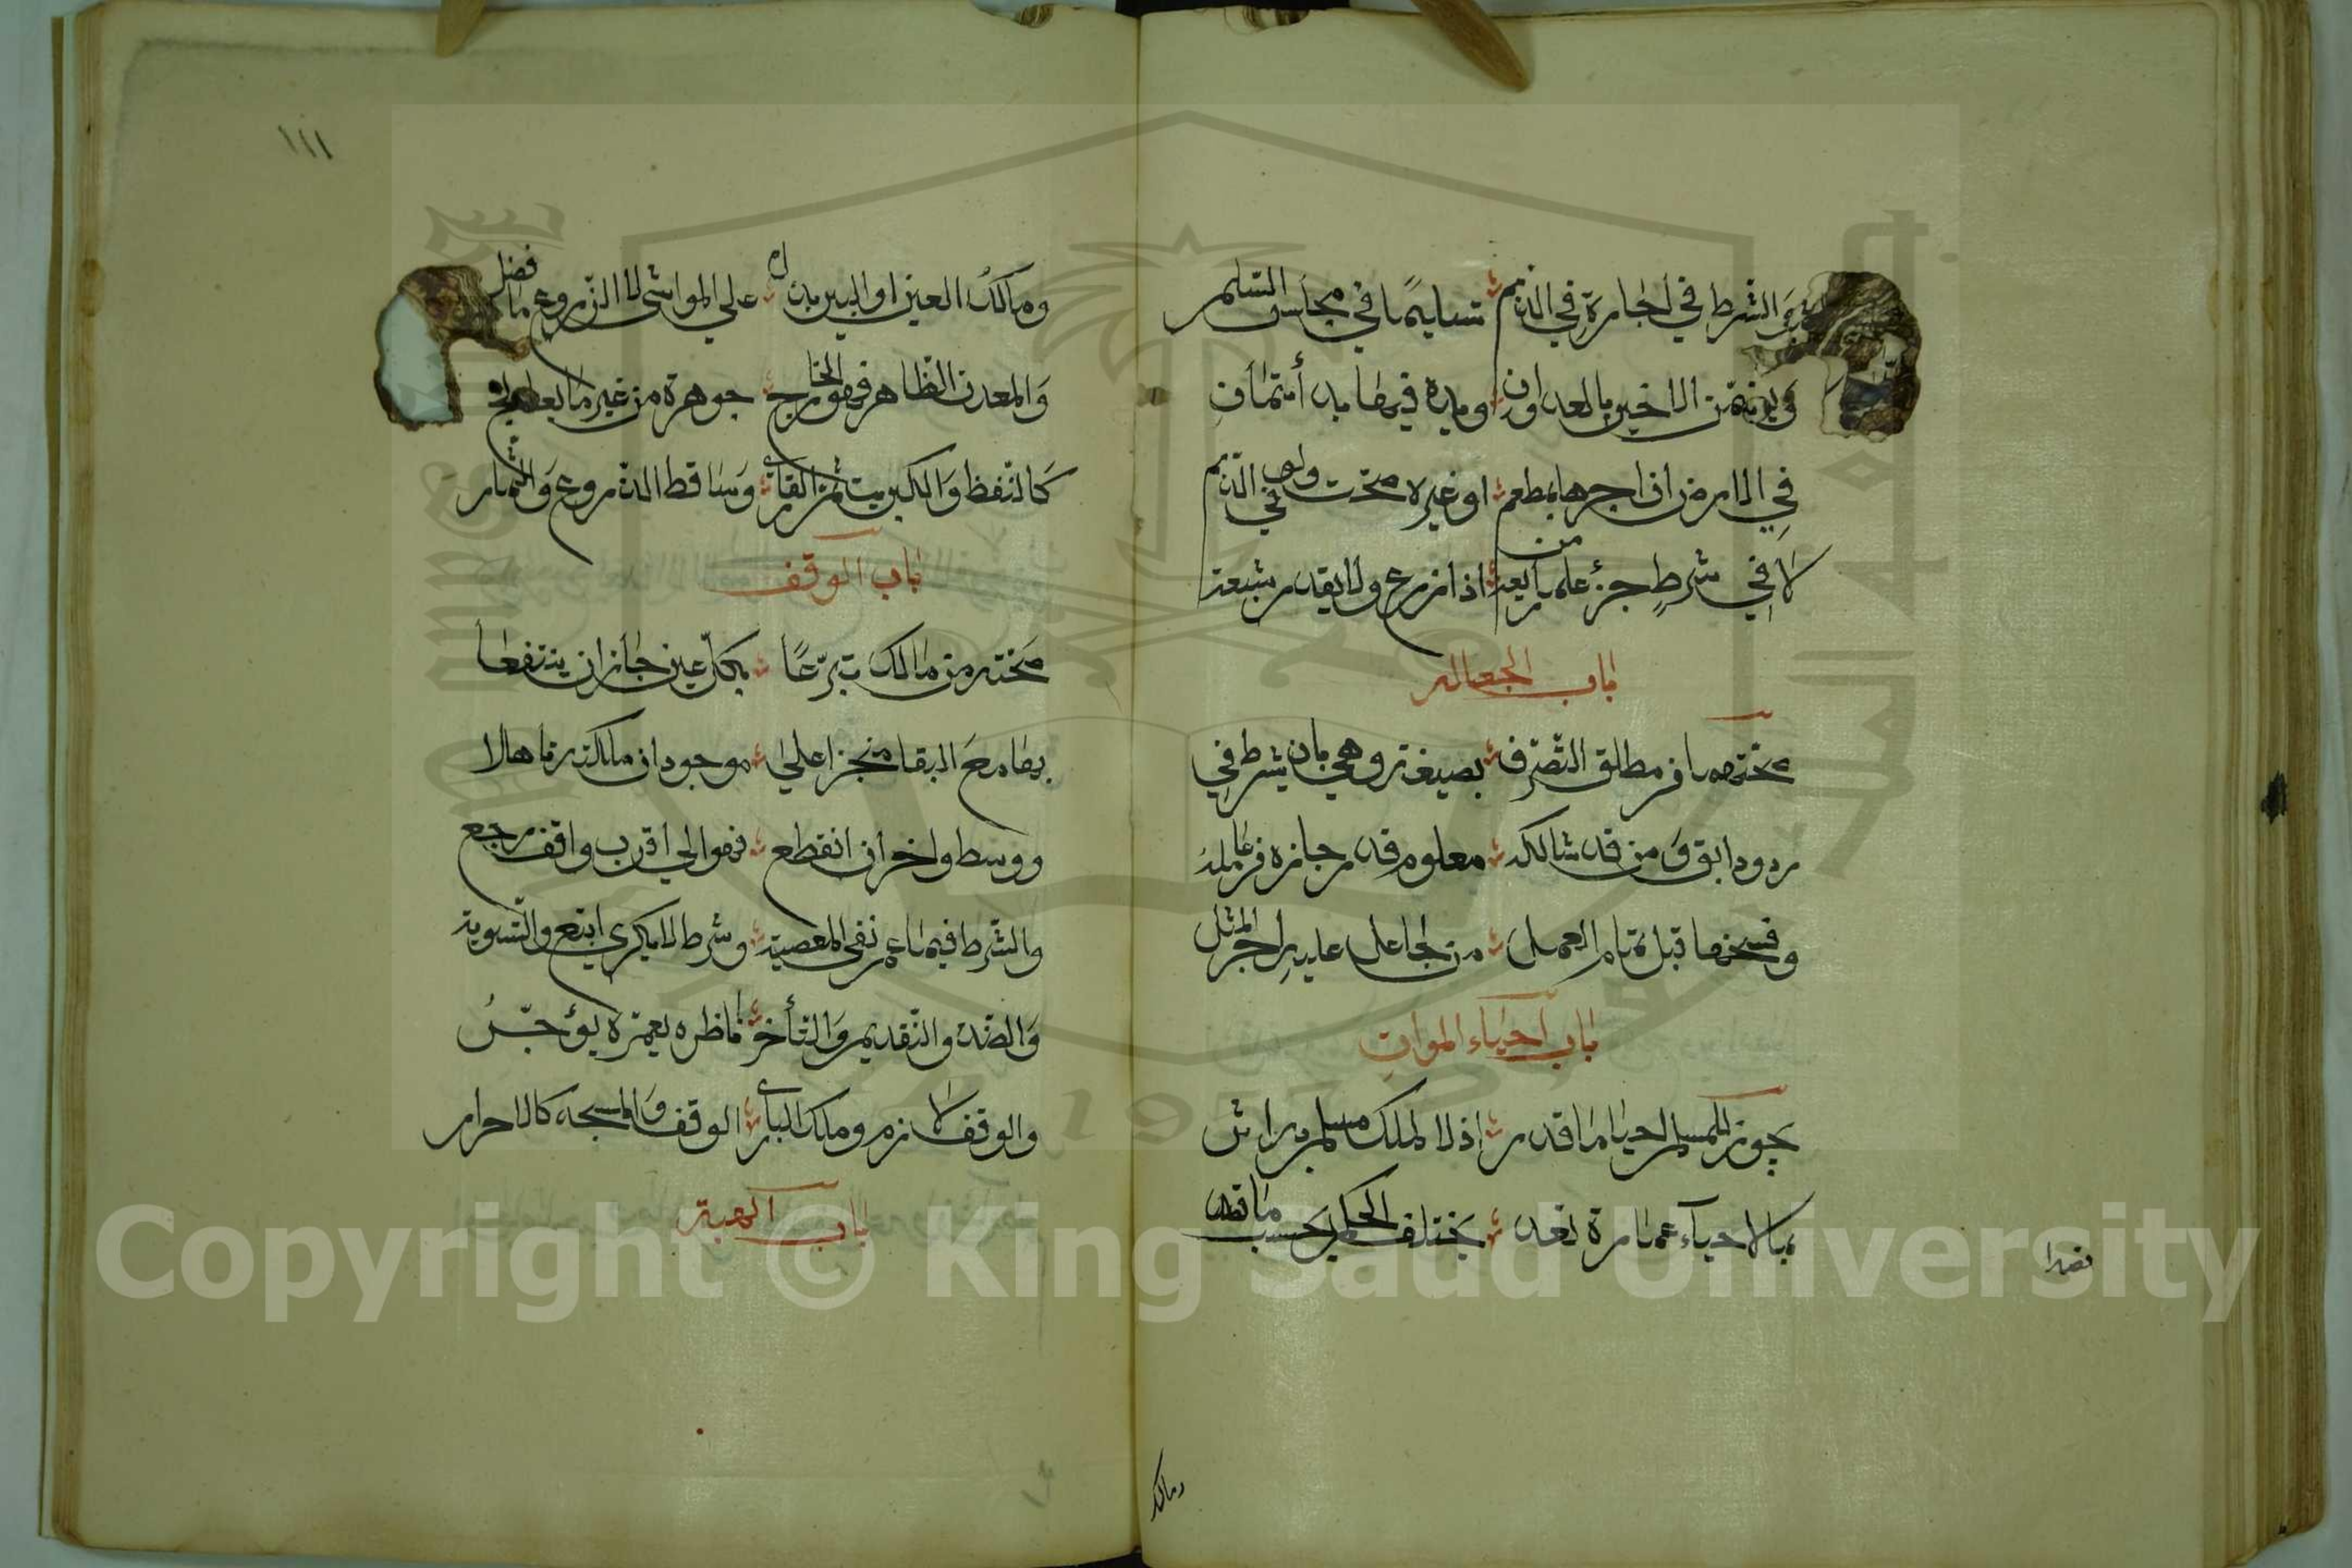 والشرط في اجارة في الذمم تسليمها في مجلس السلم
ويد الاخير بالعدوان ويده فيها يد ائتمان
في الارض ان اجرها بمطعم او غيره صحت ولو في الذمم
لا في شرط جزء علم من ريعه اذا زرع ولا بقدر شبعه
باب الجعالة
صحتها من مطلق التصرف بصيغة وهي بان يشرط في
ردود ابق ومن قد شاكله معلوم قدر حازه من عامله
وفسخها قبل تمام العمل من جاعل عليه اجر المثل
باب احياء الموات
يجوز للمسلم احيا ما قدر اذ لا لملك مسلم به اثر
بما لاحياء عمارة تعد يختلف الحكم بحسب ما قصد
قصدا
ومالك
١١١
ومالك العين او البير بذل على المواشي لا الزروع ما فضل
والمعدن الظاهر فهو الخارج جوهره من غير ما يعالج
كالنفظ والكبريت ثم القار وساقط الذروع والثمار
باب الوقف
صحته من مالك تبرعا بكل عين جاز ان ينتفعا
بها مع البقا منجزا على موجود ان ملكته تاهلا
ووسط واخر ان انقطع فهو الي اقرب واقف رجع
والشرط فيما عم نفي المعصية وشرط لا يكري اتبع والتسوية
والضد والتقديم والتأخر ناظره يعمره يؤجر
والوقف لازم وملك الباري الوقف والمسجد كالاحرار
باب الهبة
Copyright © King Saud University